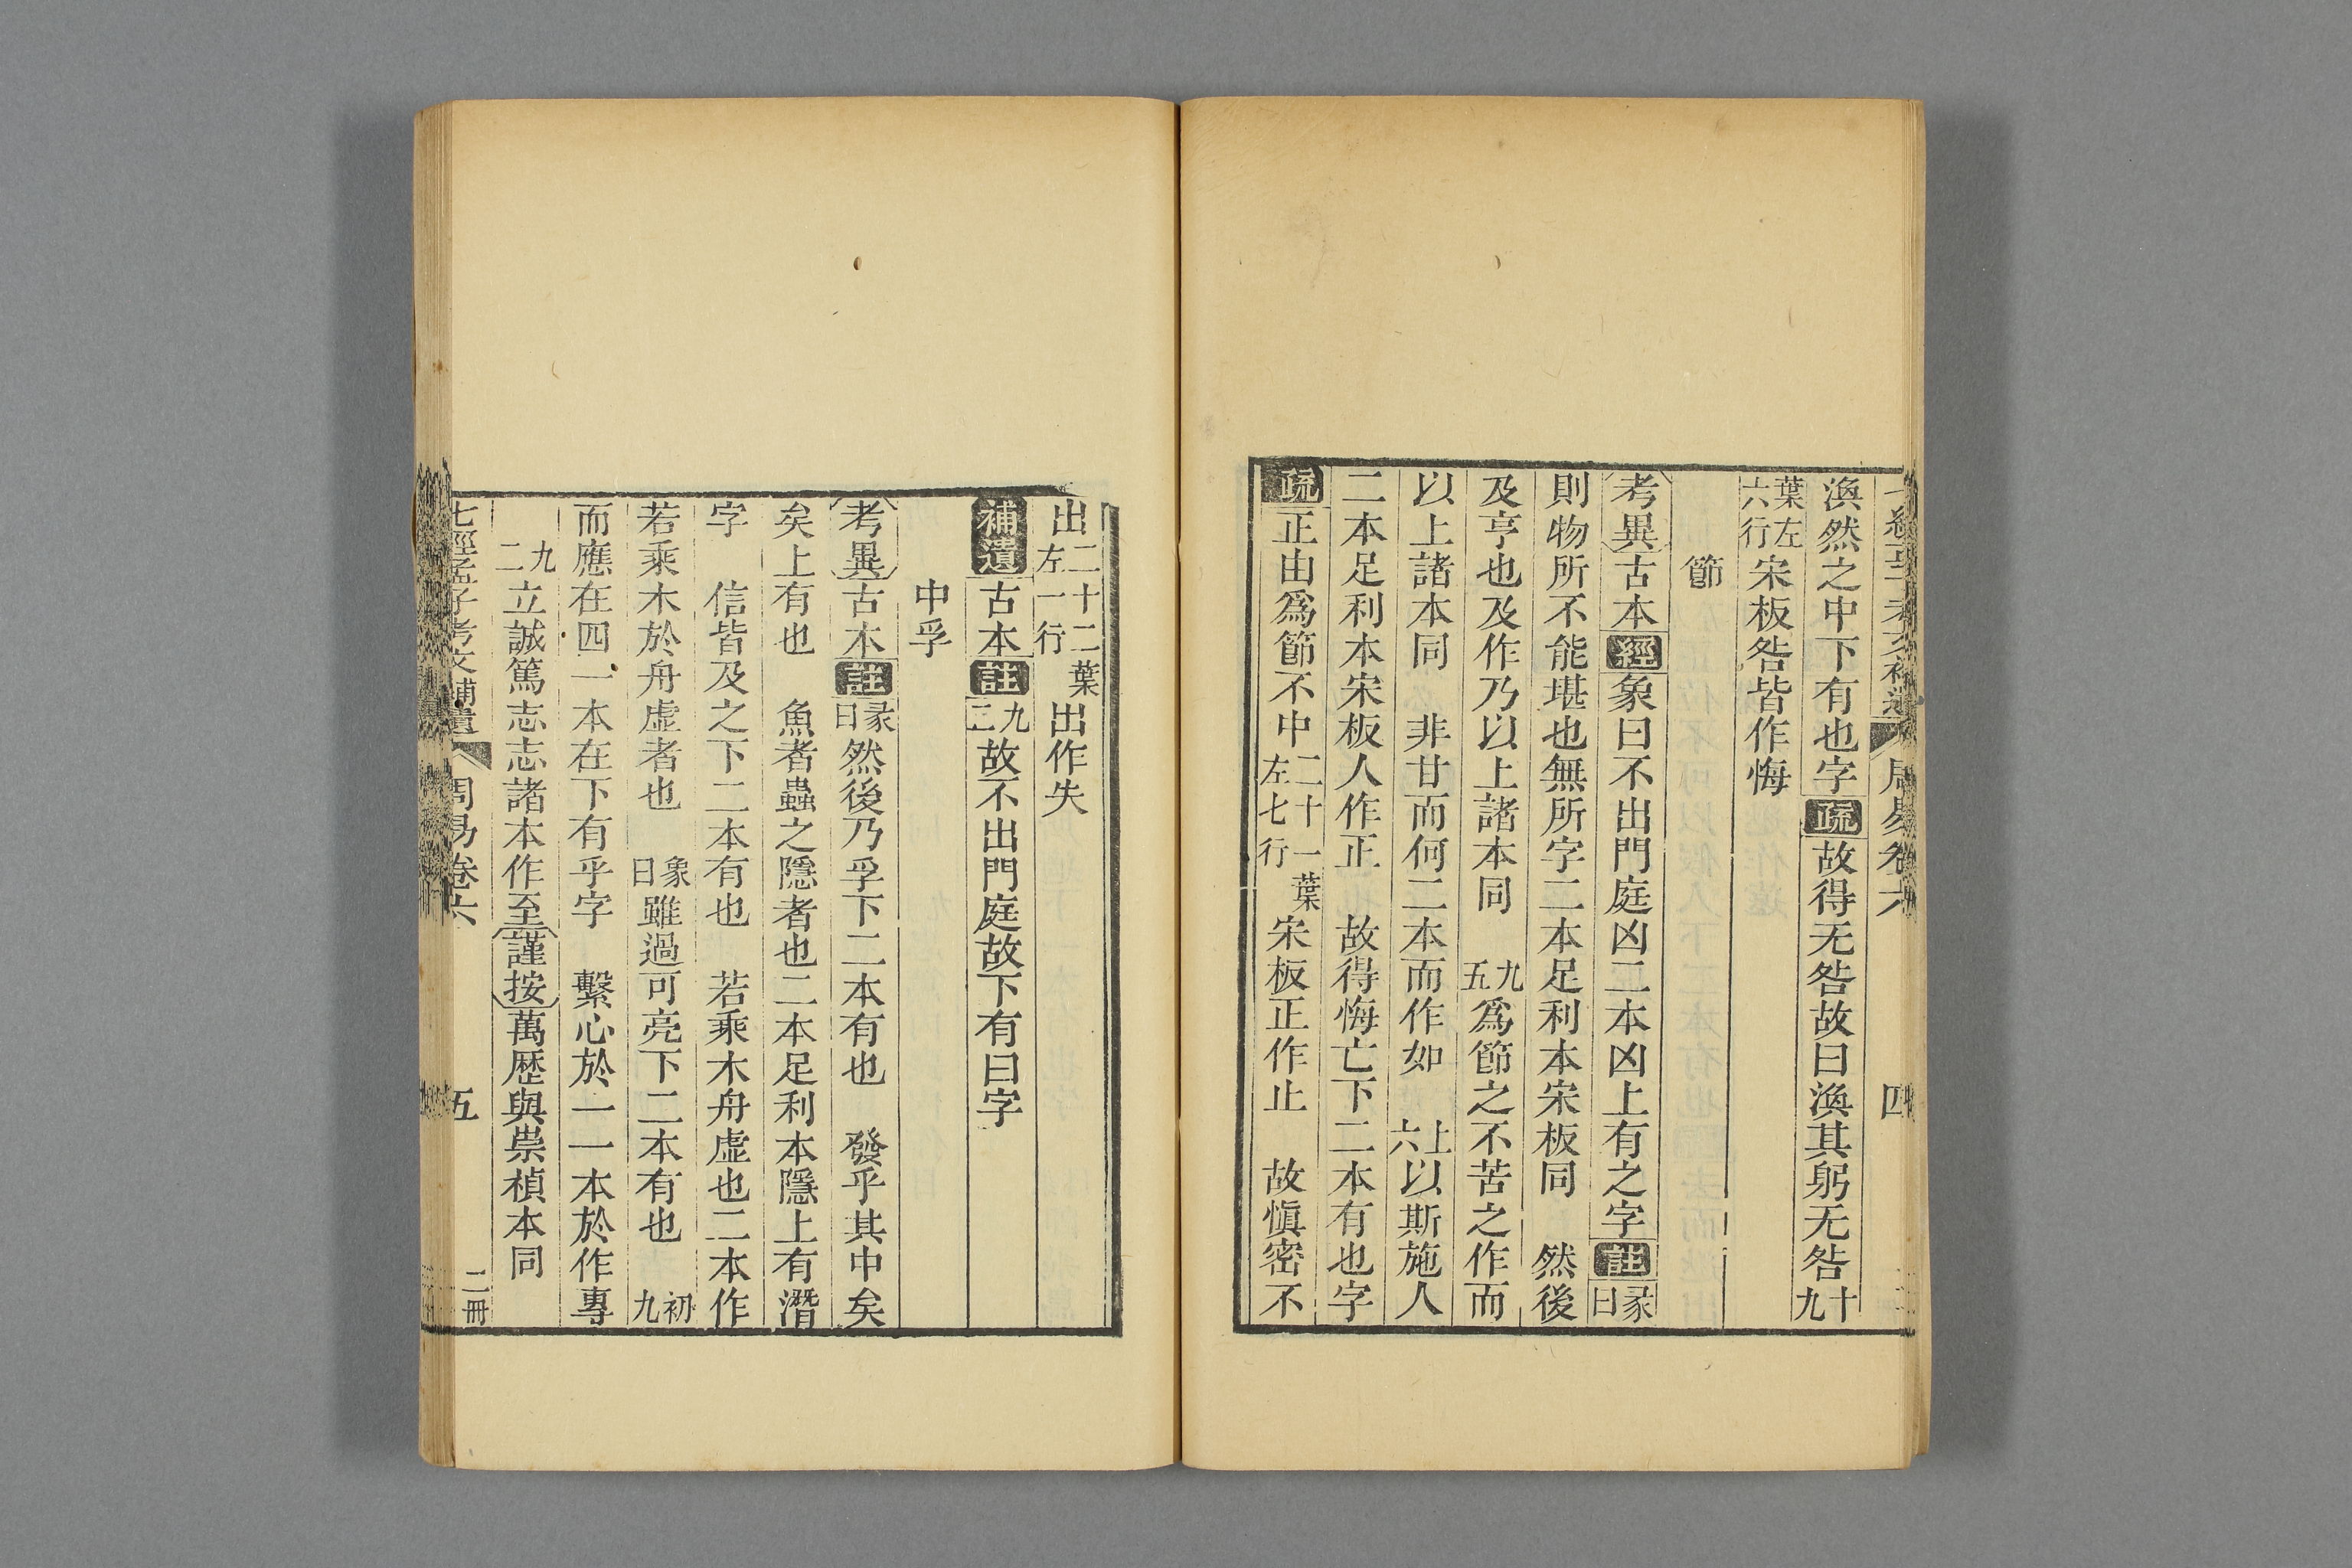 渙然之中下有也字疏故得无咎故曰渙其躬无咎十九
葉左六行宋板咎皆作悔
節
考異古本經象曰不出門庭凶二本凶上有之字註彖曰
則物所不能堪也無所字二本足利本宋板同　然後
及亨也及作乃以上諸本同　九五爲節之不苦之作而
以上諸本同　非甘而何二本而作如　上六以斯施人
二本足利本宋板人作正　故得悔亡下二本有也字
疏正由爲節不中二十一葉左七行宋板正作止　故愼密不
出二十二葉左一行出作失
補遺古本註九二故不出門庭故下有曰字
中孚
考異古本註彖曰然後乃孚下二本有也　發乎其中矣
矣上有也　魚者蟲之隱者也二本足利本隱上有潛
字　信皆及之下二本有也　若乘木舟虛也二本作
若乘木於舟虛者也　象曰雖過可亮下二本有也　初九
而應在四一本在下有乎字　繫心於一一本於作專
九二立誠篤志志諸本作至謹按萬歷與崇禎本同
七經孟子考文補遺　周易卷六　五　二冊